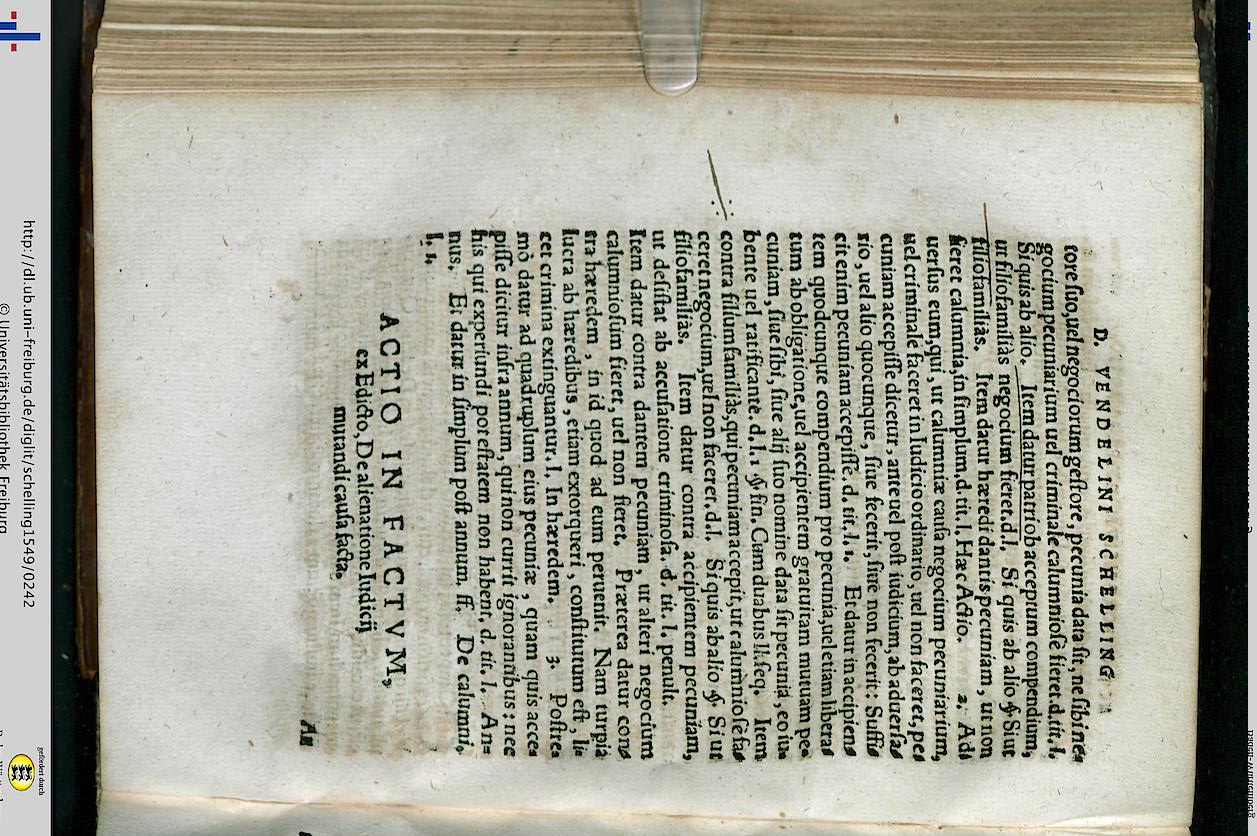 D. VENDELINI SCHELLING
tore suo, uel negociorum gestore, pecunia data sit, ne sibi ne=
gocium pecuniarium uel criminale calumniose fieret. d. tit. l.
Si quis ab alio. Item datur patri ob acceptum compendium,
ut filiofamiliàs negocium fieret. d. l. Si quis ab alio § Siue
filiofamiliàs. Item datur hæredi dantis pecuniam, ut non
fieret calumnia, in simplum. d. tit. l. Hæc Actio. 2, Ad=
uersus eum, qui, ut calumniæ causa negocium pecuniarium,
uel criminale faceret in Iudicio ordinario, uel non faceret, pe=
cuniam accepisse dicetur, ante uel post iudicium, ab aduersa=
rio, uel alio quocunque, siue fecerit, siue non fecerit: Suffi=
cit enim pecuniam accepisse. d. tit. l. 1. Et datur in accipien=
tem quodcunque compendium pro pecunia, uel etiam libera=
tum ab obligatione, uel accipientem gratuitam mutuam pe=
cuniam, siue sibi, siue alij suo nomine data sit pecunia, eo iu=
bente uel ratificante. d. l. 1 § fin. Cum duabus ll. seq. Item
contra filiumfamiliàs, qui pecuniam accepit, ut calumniose fa=
ceret negocium, uel non faceret. d. l. Si quis ab alio § Si ut
filiofamiliàs. Item datur contra accipientem pecuniam,
ut desistat ab accusatione criminosa. d. tit. l. penult.
Item datur contra dantem pecuniam, ut alteri negocium
calumniosum fieret, uel non fieret. Præterea datur con=
tra hæredem, in id quod ad eum peruenit. Nam turpia
lucra ab hæredibus, etiam extorqueri, constitutum est, li=
cet crimina extinguantur. l. In hæredem. 3. Postre=
mò datur ad quadruplum eius pecuniæ, quam quis acce=
pisse dicitur infra annum, qui non currit ignorantibus: nec
his qui experiundi potestatem non habent. d. tit. l. An=
nus. Et datur in simplum post annum. ff. De calumni,
l. 1.
ACTIO IN FACTVM,
ex Edicto, De alienatione Iudicij
mutandi causa facta.
An
http://dl.ub.uni-freiburg.de/diglit/schelling1549/0242
© Universitätsbibliothek Freiburg
gefördert durch